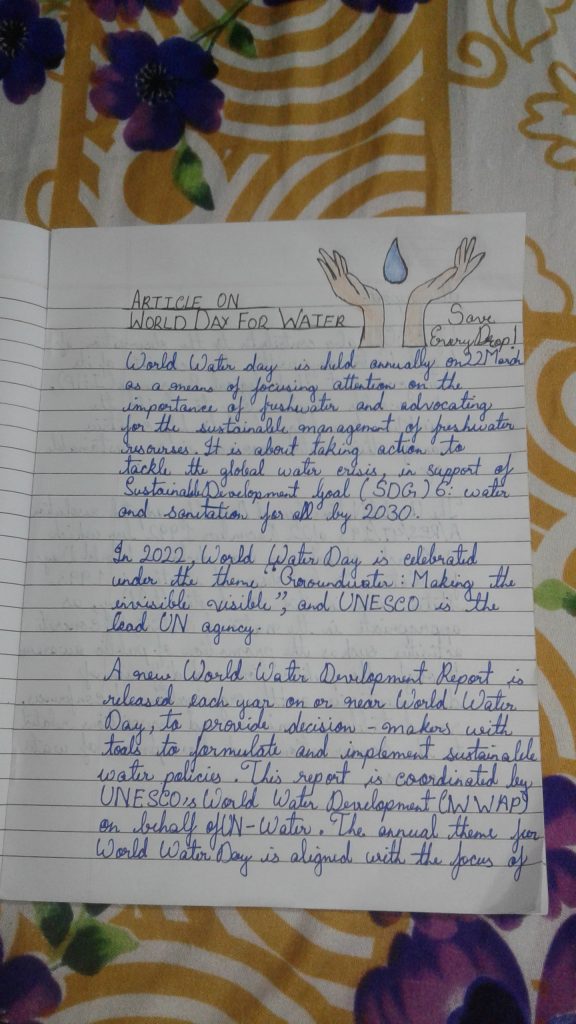 ARTICLE ON
WORLD DAY FOR WATER
Save
Every Drop!
World Water day is held annually on 22 March
as a means of focusing attention on the
importance of freshwater and advocating
for the sustainable management of freshwater
resourses. It is about taking action to
tackle the global water crisis, in support of
Sustainable Development Goal (SDG) 6: water
and sanitation for all by 2030.
In 2022, World Water Day is celebrated
under the theme "Groroundwater: Making the
invisible visible", and UNESCO is the
lead UN agency.
A new World Water Development Report is
released each year on or near World Water
Day, to provide decision-makers with
tools to formulate and implement sustainable
water policies. This report is coordinated by
UNESCO's World Water Development (WWAP)
on behalf of UN-Water. The annual theme for
World Water Day is aligned with the focus of